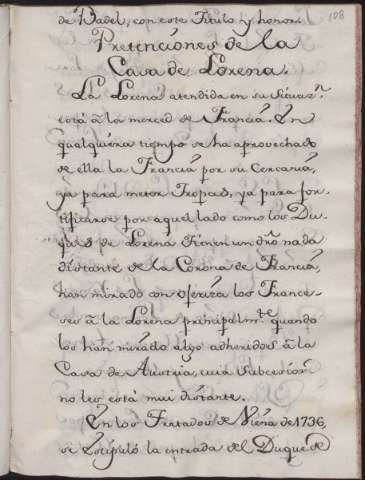 108
de Badel, con este Titulo y honor.
Pretenciones de la
Casa de Lorena.
La Lorena atendida en su situaz.n
está à la merced de Francia. En
qualquiera tiempo se ha aprovechado
de ella la Francia por su Cercania,
ya para meter Tropas, ya para for-
tificarse por aquel lado como los Du-
ques de Lorena tienen un dro nada
distante de la Corona de Francia,
han mirado con ojeriza los France-
ses à la Lorena principalm.te quando
los han mirado algo adheridos à la
Casa de Austria, cuia Subcesion
no les está mui distante.
En los Tratados de Viena de 1736,
se estipuló la entrada del Duque de